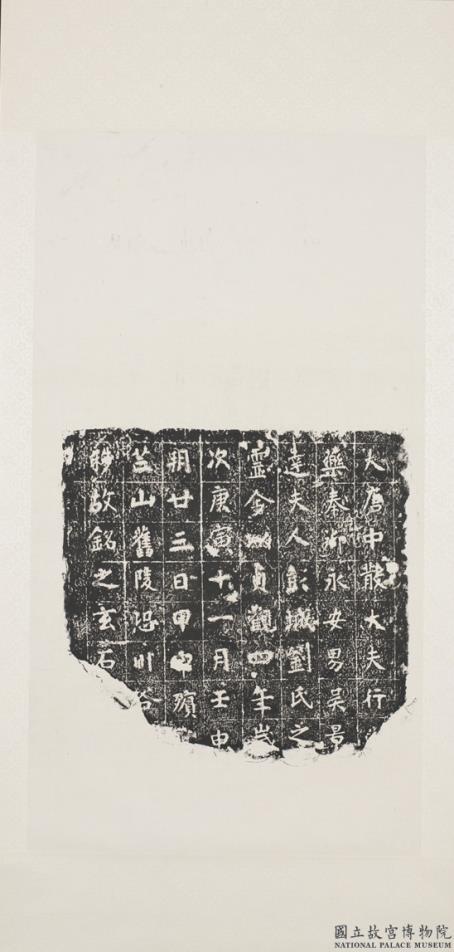 大唐中散大夫行
藥奉御永安男吴景
達夫人彭城劉氏之
靈貞觀四年歲
次庚寅十一月壬申
朔廿三日甲殯
芒山舊陵恐川谷
移故銘之玄石
國立故宮博物院
NATIONAL PALACE MUSEUM